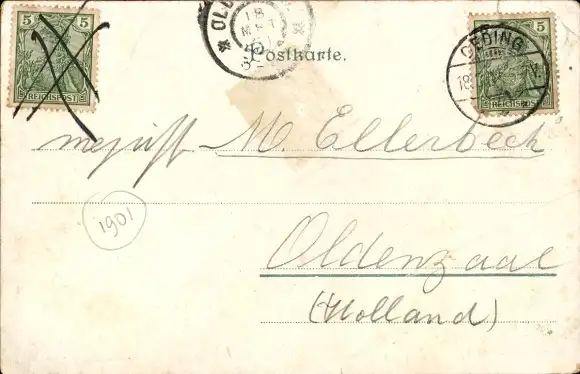 5 5
REICHSPOST
OLD
18
Postkarte.
5 5
REICHSPOST
OEDING
18
M. Ellerbeck
1901
Oldenzaal
(Holland)